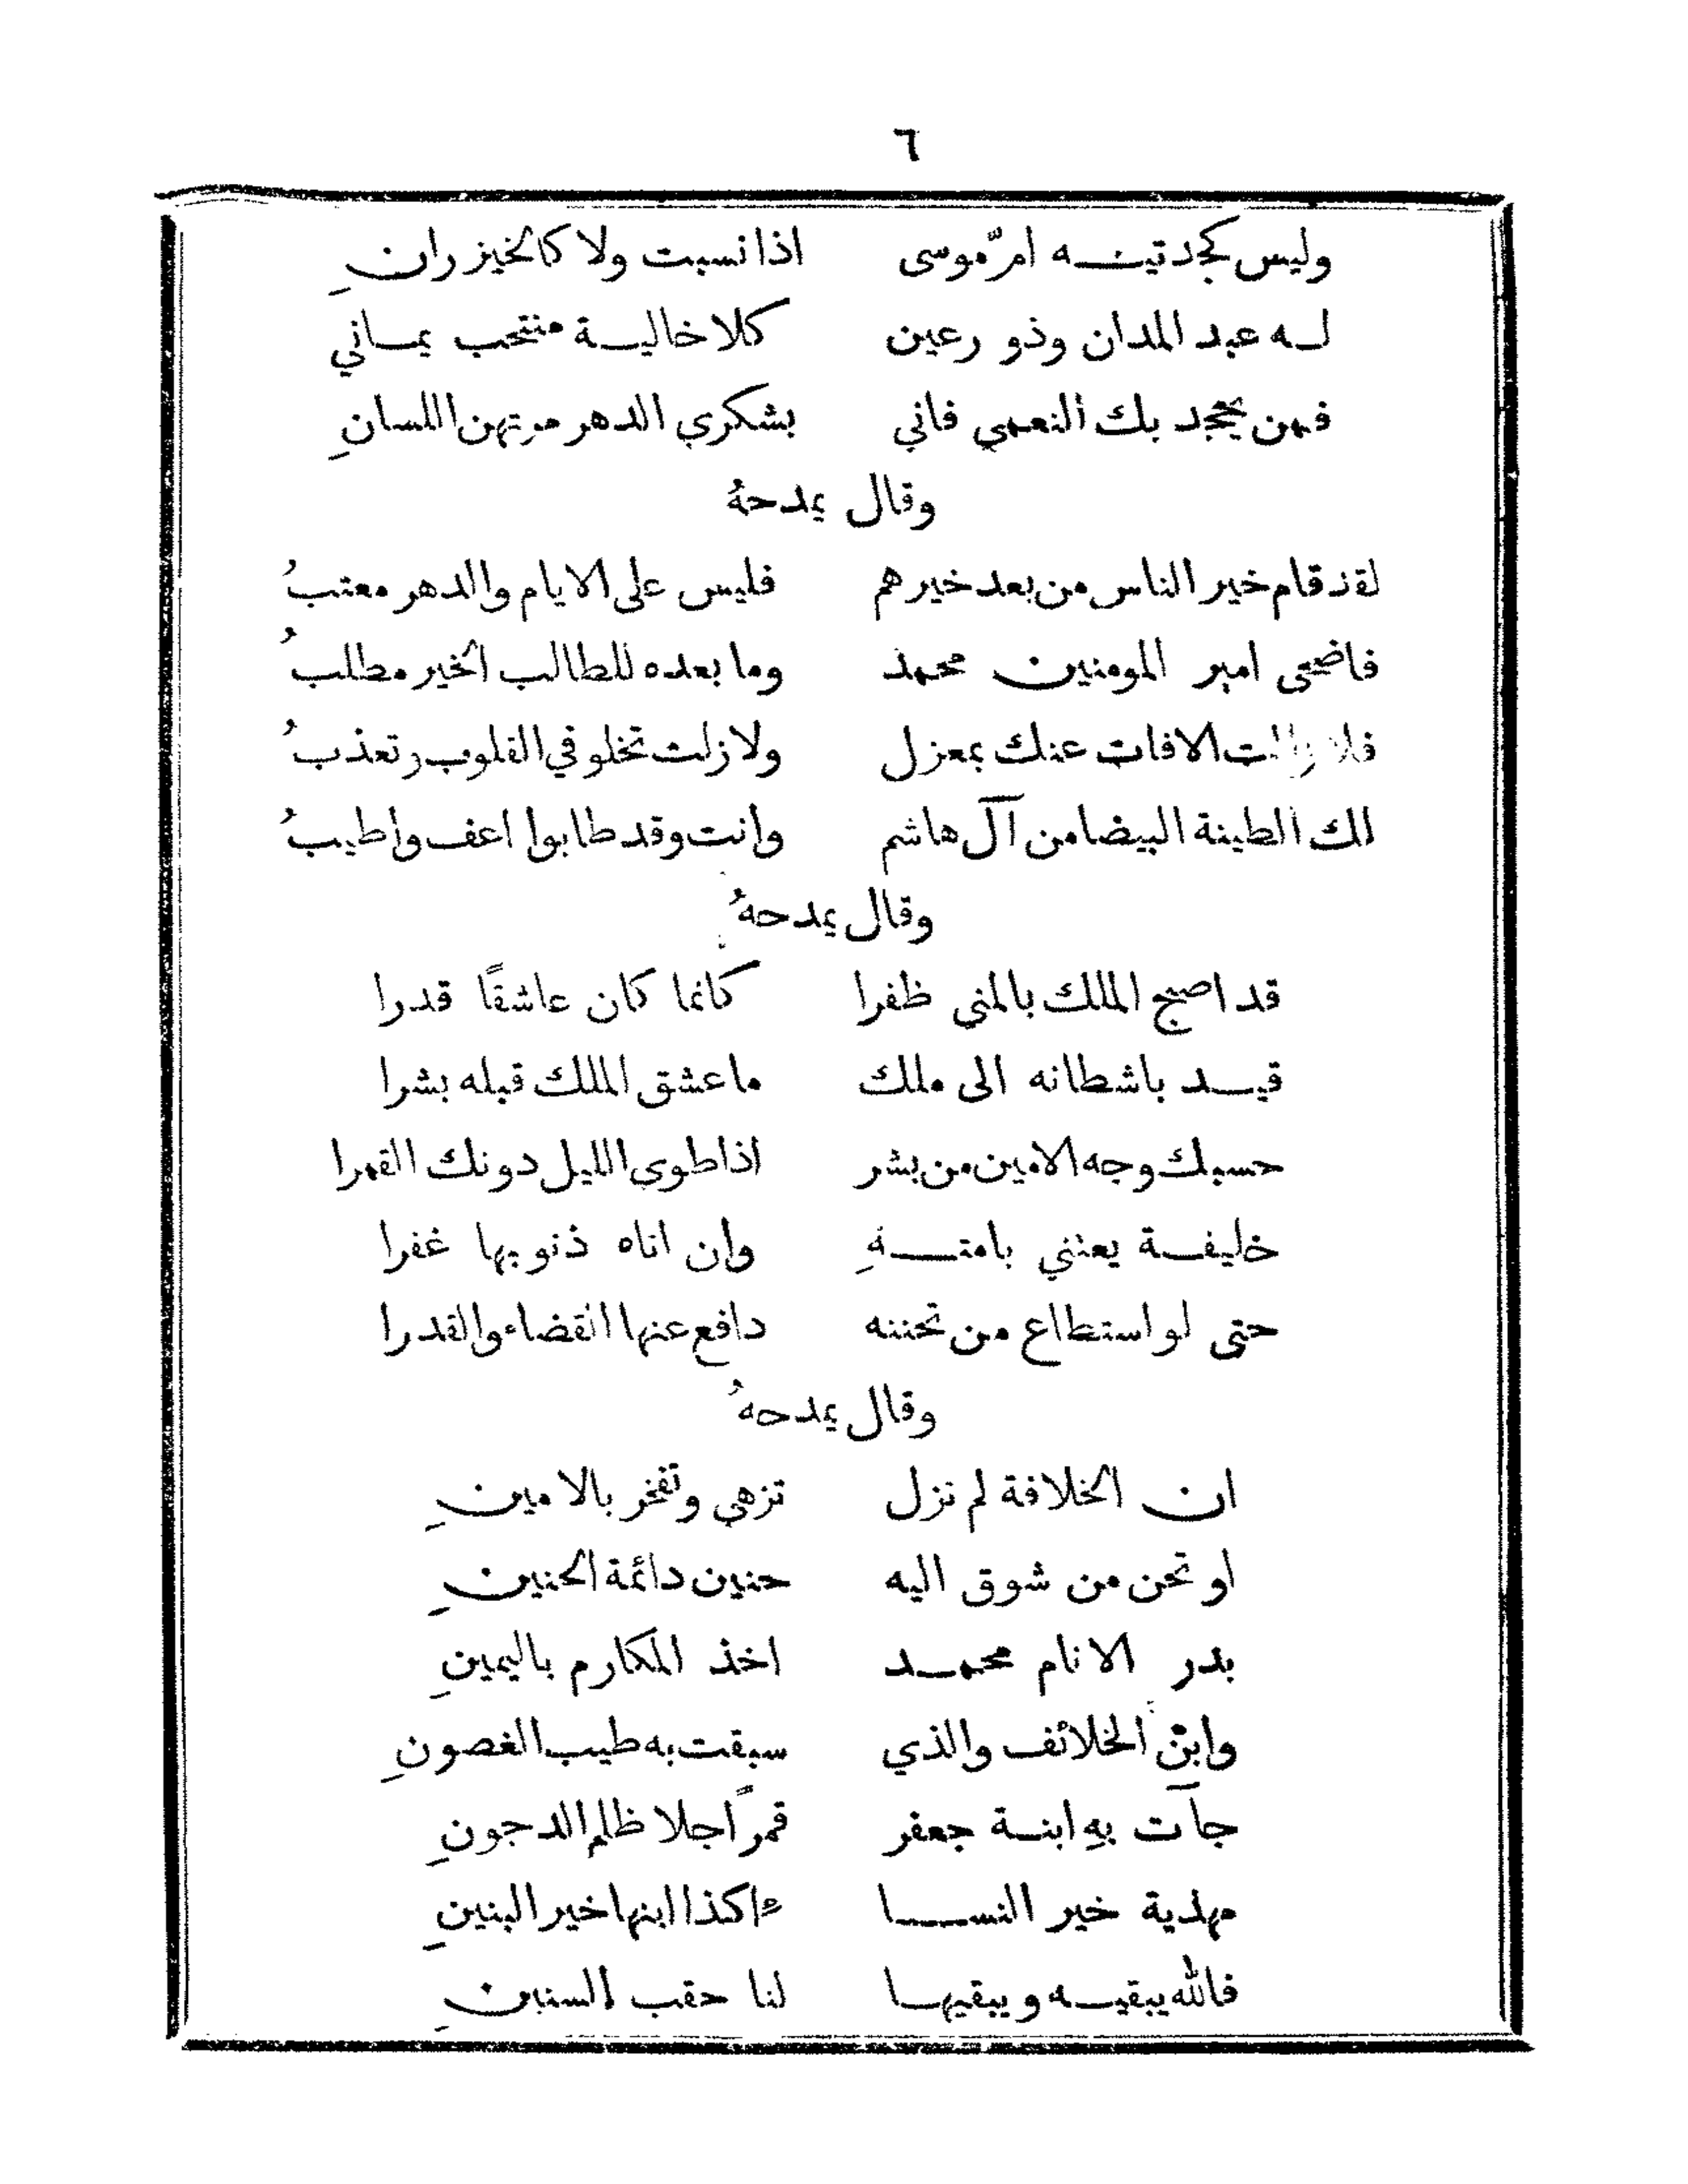 ٦
وليس كجدتيه ام موسى اذا نسبت ولا كالخيزرانِ
له عبد المدان وذو رعين كلا خاليه منتخب يماني
فمن يجحد بك النعمى فاني بشكري الدهر مرتهن اللسانِ
وقال يمدحهُ
لقد قام خير الناس من بعد خيرهم فليس على الايام والدهر معتبُ
فاضحى امير المومنين محمد وما بعده للطالب الخير مطلبُ
فلا زالت الافات عنك بمعزل ولا زلت تخلو في القلوب وتعذبُ
لك الطينة البيضا من آل هاشم وانت وقد طابوا اعف واطيبُ
وقال يمدحهُ
قد اصبح الملك بالمني ظفرا كانما كان عاشقًا قدرا
قيد باشطانه الى ملك ما عشق الملك قبله بشرا
حسبك وجه الامين من بشر اذا طوى الليل دونك القمرا
خليفة يعتني بامتهِ وان اتاه ذنوبها غفرا
حتى لو استطاع من تحننه دافع عنها القضاء والقدرا
وقال يمدحهُ
ان الخلافة لم تزل تزهى وتفخر بالامينِ
او تحن من شوق اليه حنين دائمة الحنينِ
بدر الانام محمد اخذ المكارم باليمينِ
وابن الخلائف والذي سبقت به طيب الغصونِ
جآت بهِ ابنة جعفر قمرًا جلا ظلم الدجونِ
مهدية خير النسا ءاكذا ابنها خير البنينِ
فالله يبقيه ويبقيها لنا حقب السنينِ